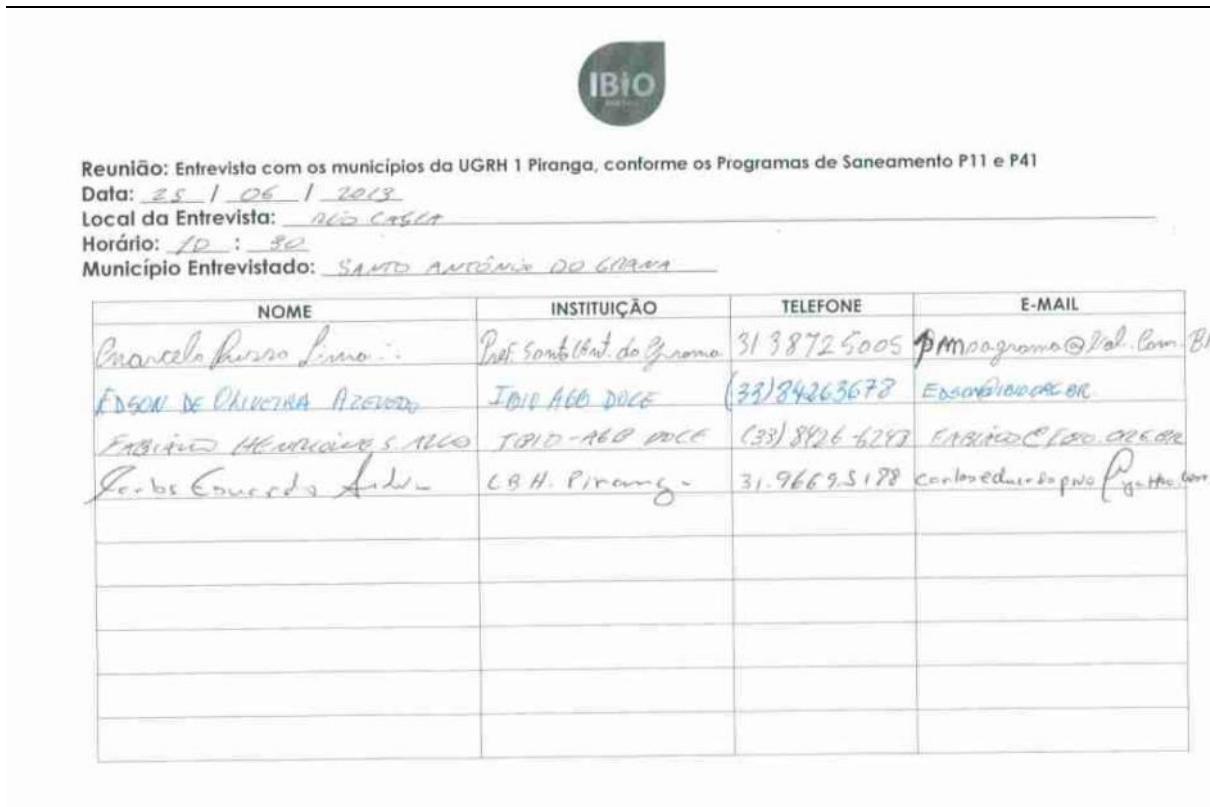 IBiO
Reunião: Entrevista com os municípios da UGRH 1 Piranga, conforme os Programas de Saneamento P11 e P41
Data: 25 / 06 / 2013
Local da Entrevista: RIO CASCA
Horário: 10 : 30
Município Entrevistado: SANTO ANTÔNIO DO GRAMA
NOME INSTITUIÇÃO TELEFONE E-MAIL
Marcelo Lima Pref. Santo Ant. do Grama 31 38725005
EDSON DE OLIVEIRA AZEVEDO IBIO AGB DOCE (33)84263678 EDSON@IBIO.ORG.BR
FABIANO HENRIQUE S. IBIO-AGB DOCE (33) 8426-6243 FABIANO@IBIO.ORG.BR
Carlos Eduardo CBH. Piranga 31.96695188